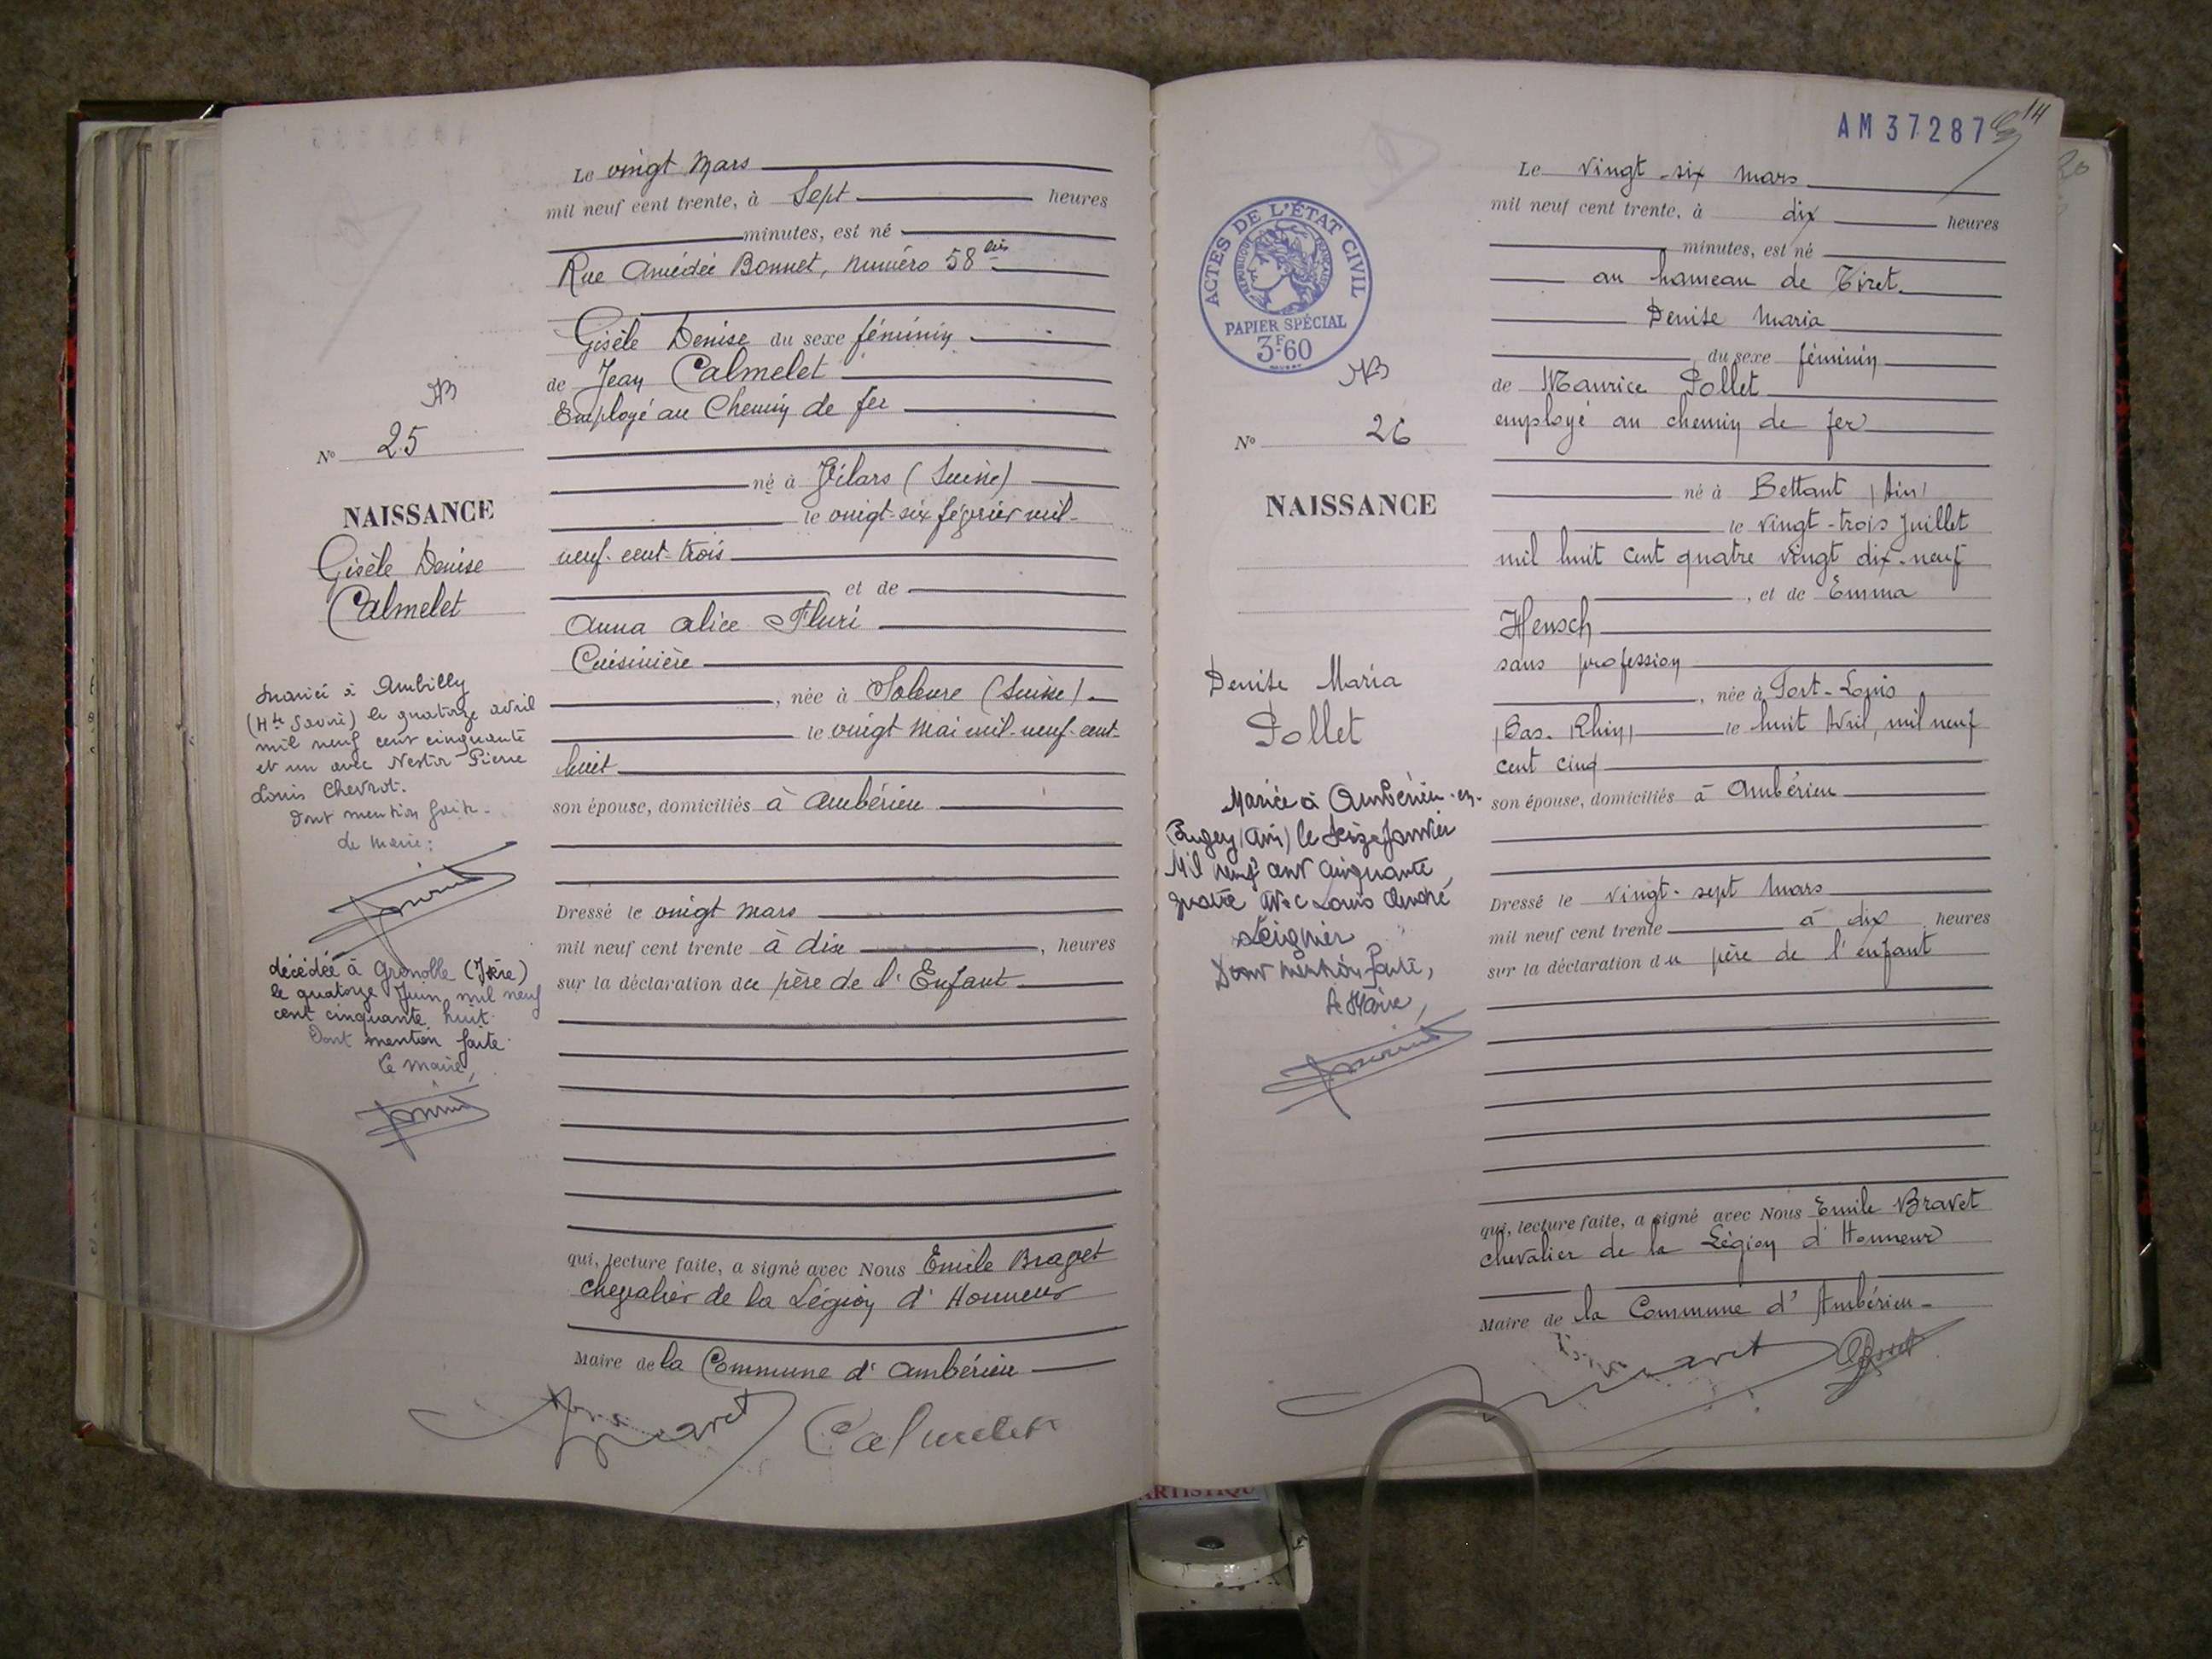 Le vingt Mars
mil neuf cent trente, à Sept heures
minutes, est né
Rue Amédée Bonnet, numéro 58 bis
Gisèle Denise du sexe féminin
de Jean Calmelet
Employé au Chemin de fer
né à Vilars (Suisse)
le vingt-six février mil-
neuf-cent-trois
et de
Anna Alice Fluri
Cuisinière
, née à Soleure (Suisse)
le vingt Mai mil-neuf-cent-
huit
son épouse, domiciliés à Ambérieu
Dressé le vingt Mars
mil neuf cent trente à dix , heures
sur la déclaration du père de l'Enfant
qui, lecture faite, a signé avec Nous Emile Bravet
Chevalier de la Légion d'Honneur
Maire de la Commune d'Ambérieu
Bravet Calmelet
N° 25
NAISSANCE
Gisèle Denise
Calmelet
Mariée à Ambilly
(Hte Savoie) le quatorze avril
mil neuf cent cinquante
et un avec Nestor Pierre
Louis Chevrot.
Dont mention faite.
décédée à Grenoble (Isère)
le quatorze Juin mil neuf
cent cinquante huit.
Dont mention faite.
Le maire,
AM 37287
14
Le vingt-six mars
mil neuf cent trente, à dix heures
minutes, est né
au hameau de Tiret
Denise Maria
du sexe féminin
de Maurice Pollet
employé au chemin de fer
né à Bettant (Ain)
le vingt-trois Juillet
mil huit cent quatre vingt dix-neuf
, et de Emma
Hensch
sans profession
, née à Fort-Louis
(Bas-Rhin) le huit Avril, mil neuf
cent cinq
son épouse, domiciliés à Ambérieu
Dressé le vingt-sept mars
mil neuf cent trente à dix heures
sur la déclaration du père de l'enfant
qui, lecture faite, a signé avec Nous Emile Bravet
chevalier de la Légion d'Honneur
Maire de la Commune d'Ambérieu
ACTES DE L'ÉTAT CIVIL
RÉPUBLIQUE FRANÇAISE
PAPIER SPÉCIAL
3F60
N° 26
NAISSANCE
Denise Maria
Pollet
Mariée à Ambérieu-en-
Bugey (Ain) le seize Janvier
Mil neuf cent cinquante
quatre avec Louis André
Dont mention faite,
Le Maire,
ARTISTIQU